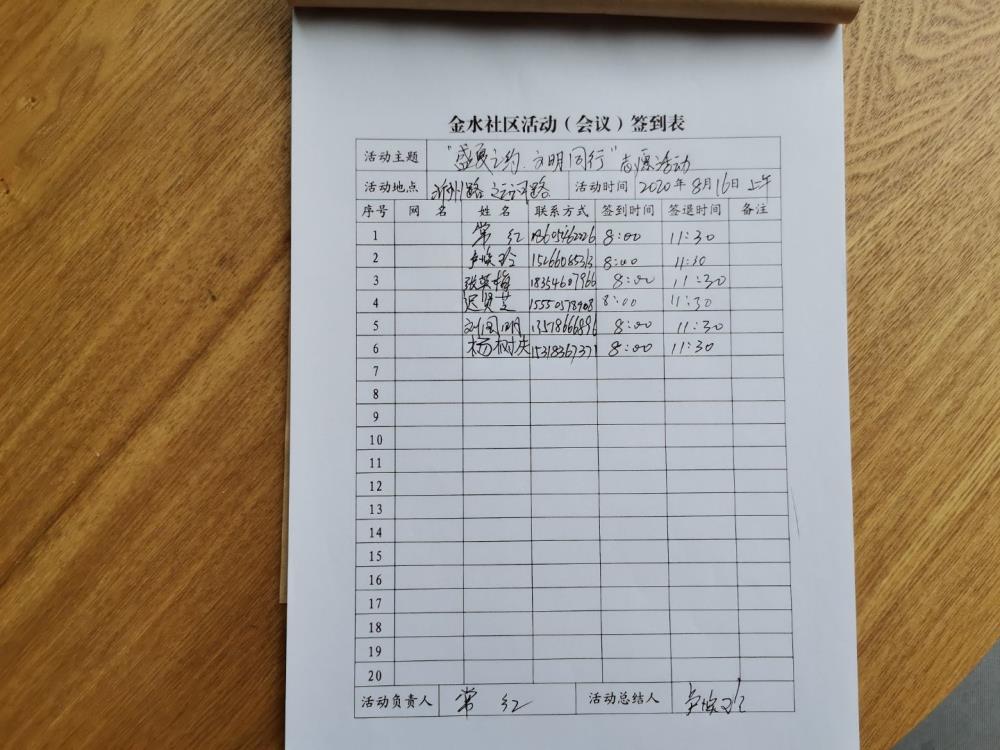 金水社区活动（会议）签到表
活动主题 “盛夏之约.文明同行”志愿活动
活动地点 路 活动时间 2020年8月16日上午
序号 网名 姓名 联系方式 签到时间 签退时间 备注
1 常红 8:00 11:30
2 8:00 11:30
3 张英梅 18354607966 8:00 11:30
4 迟贤芝 8:00 11:30
5 刘国明 8:00 11:30
6 杨树 8:00 11:30
7
8
9
10
11
12
13
14
15
16
17
18
19
20
活动负责人 常红 活动总结人